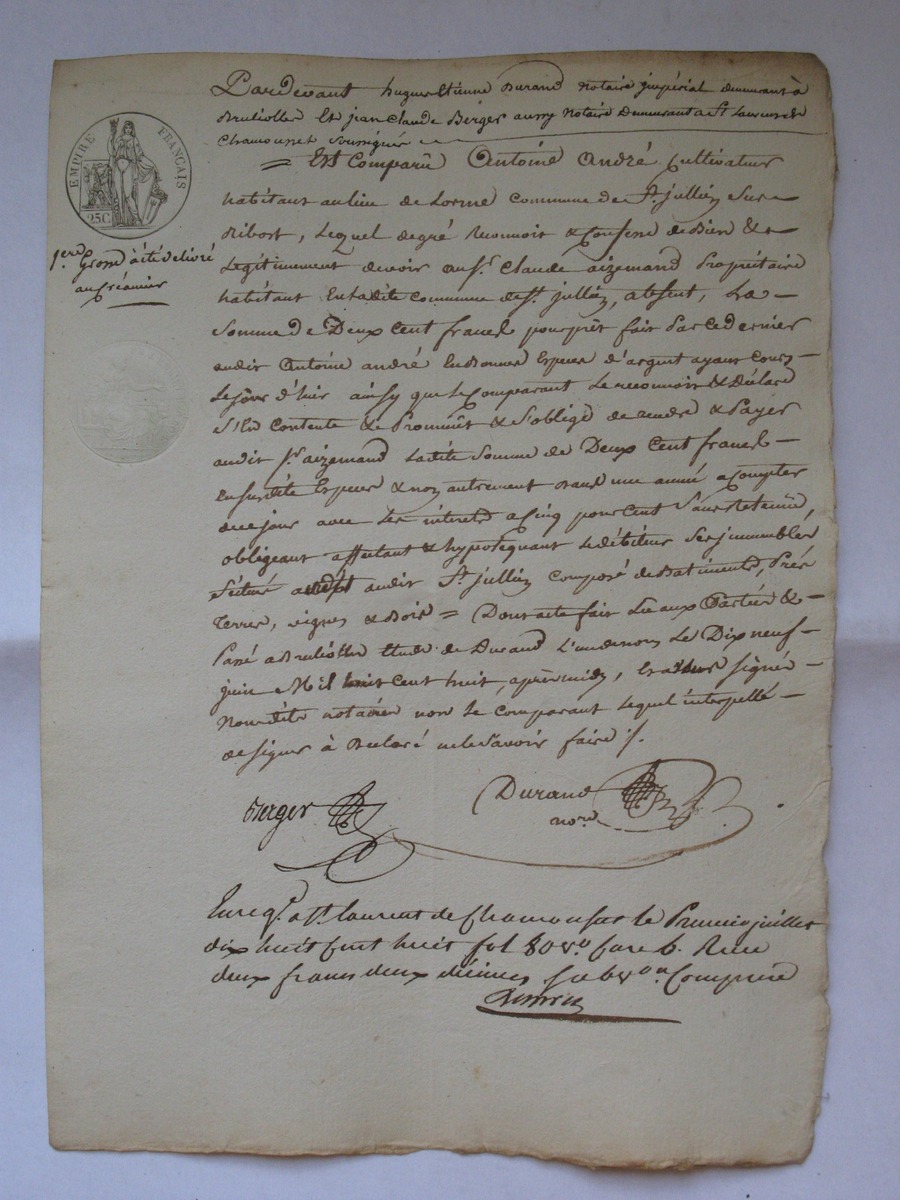 EMPIRE FRANÇAIS
25C.
1.ere Grosse à été délivré
au créancier
Pardevant hugues Etienne Durand notaire jmpérial demeurant à
Bruliolle Et jean Claude Berger aussy Notaire Demeurant a St. Laurent de
Chamousset soussignés
= Est Comparû Antoine André Cultivateur
habitant au lieu de Lorme Commune de St. jullien Sur
Bibost, Lequel de gré Reconnoit & Confesse de Bien &
Légitimement devoir au sr. Claude aizemand Propriétaire
habitant En ladite Commune de St. jullien, absent, La
Somme de Deux Cent francs pour prêt fait Par ce dernier
audit Antoine andré En Bonnes Espèces d'argent ayant Cours
Le jour d'hier ainsy que le Comparant Le reconnoit & Déclare
S'En Contente & Promet & S'oblige de rendre & Payer
audit sr. aizemand Ladite Somme de Deux Cent francs
En susdite Espèces & non autrement Dans une année a Compter
de ce jour avec Les intérêts a Cinq pour Cent Sans retenüe,
obligeant affectant & hypotéquant Le débiteur Ses jmmeubles
Situés audit St. jullien Composé de Batiments, Prés
Terres, vignes & Bois = Dont acte fait Lu aux Parties &
Passé a Brulliolle Etude de Durand L'un de nous Le Dix neuf
juin Mil huit Cent huit, après midy, signé
nousdits notaires non le Comparant Lequel interpellé
de signer à Déclaré ne le Savoir faire ./.
Berger
Durand
nore.
Enregé. a St. laurent de Chamousset le Premier juillet
dix huit Cent huit fol 80 vo. Case 6. Reçu
deux francs deux décimes Subvon. Comprise